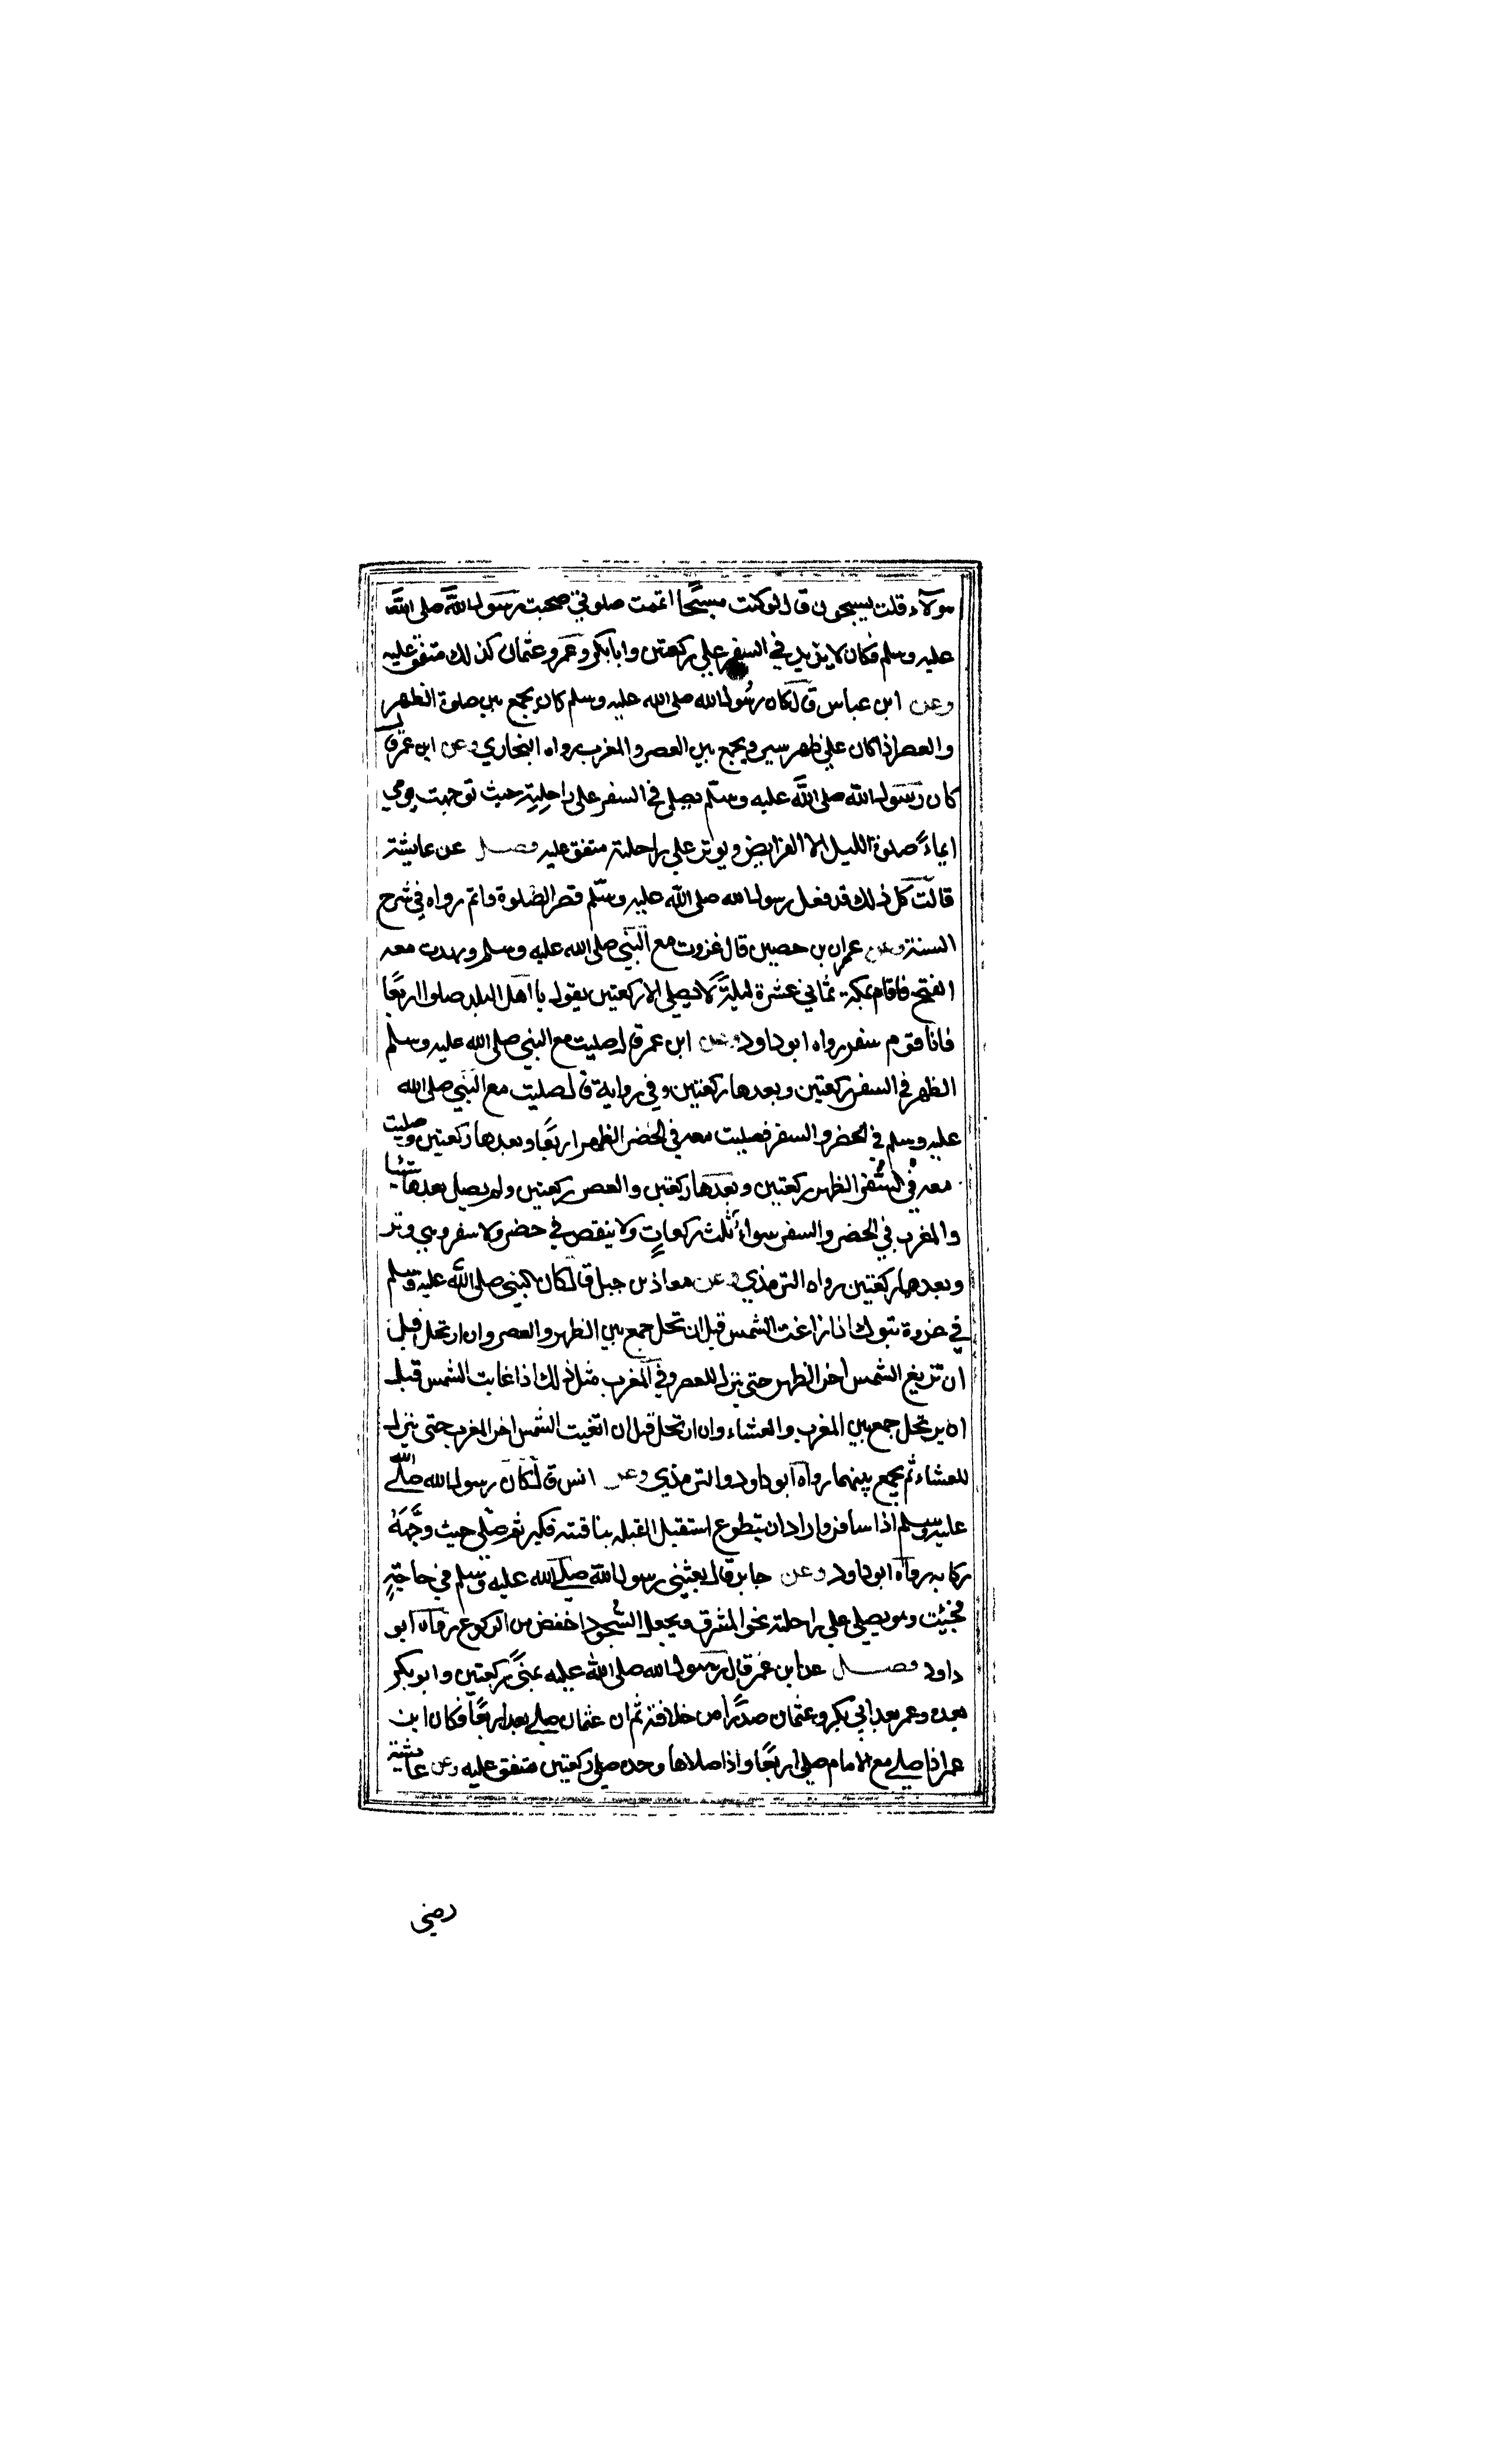 هولاء قلت يسبحون قال لو كنت مسبحا اتممت صلوتي صحبت رسول الله صلى الله
عليه وسلم فكان لا يزيد في السفر علي ركعتين وابا بكر وعمر وعثمان كذلك متفق عليه
وعن ابن عباس قال كان رسول الله صلى الله عليه وسلم كان يجمع بين صلوة الظهر
والعصر اذا كان علي ظهر سير ويجمع بين العصر والمغرب رواه البخاري وعن ابن عمر قال
كان رسول الله صلى الله عليه وسلم يصلي في السفر على راحلته حيث توجهت يومي
ايماءً صلوة الليل الا الفرايض ويوتر علي راحلته متفق عليه فصل عن عايشة
قالت كل ذلك قد فعل رسول الله صلى الله عليه وسلم قصر الصلوة واتم رواه في شرح
السنة وعن عمران بن حصين قال غزوت مع النبي صلى الله عليه وسلم وشهدت معه
الفتح فاقام بمكة ثماني عشرة ليلة لا يصلي الا ركعتين يقول يا اهل البلد صلوا اربعًا
فانا قوم سفر رواه ابو داود وعن ابن عمر قال صليت مع النبي صلى الله عليه وسلم
الظهر في السفر ركعتين وبعدها ركعتين وفي رواية قال صليت مع النبي صلى الله
عليه وسلم في الحضر والسفر فصليت معه في الحضر الظهر اربعًا وبعدها ركعتين وصليت
معه في السفر الظهر ركعتين وبعدها ركعتين والعصر ركعتين ولم يصل بعدها شيئا
والمغرب في الحضر والسفر سواءً ثلث ركعاتٍ ولا ينقص في حضر ولا سفر وهي وتر
وبعدها ركعتين رواه الترمذي وعن معاذ بن جبل قال كان النبي صلى الله عليه وسلم
في غزوة تبوك اذا زاغت الشمس قبل ان تحل جمع بين الظهر والعصر وان ارتحل قبل
ان تزيغ الشمس اخر الظهر حتى ينزل للعصر وفي المغرب مثل ذلك اذا غابت الشمس قبل
ان يرتحل جمع بين المغرب والعشاء وان ارتحل قبل ان تغيت الشمس اخر المغرب حتى ينزل
للعشاء ثم يجمع بينهما رواه ابو داود والترمذي وعن انس قال كان رسول الله صلى الله
عليه وسلم اذا سافر واراد ان يتطوع استقبل القبله بناقته فكبر ثم صلى حيث وجَّهَهُ
ركابه رواه ابو داود وعن جابر قال بعثني رسول الله صلى الله عليه وسلم في حاجةٍ
فجئت وهو يصلي علي راحلته نحو المشرق ويجعل السُجود اخفض من الركوع رواه ابو
داود فصل عن ابن عمر قال رسول الله صلى الله عليه بمنىً ركعتين وابو بكر
بعده وعمر بعد ابي بكر وعثمان صدرًا من خلافته ثم ان عثمان صلى بعد اربعًا فكان ابن
عمر اذا صلى مع الامام صلى اربعًا واذا صلاها وحده صلى ركعتين متفق عليه وعن عايشة
رضي